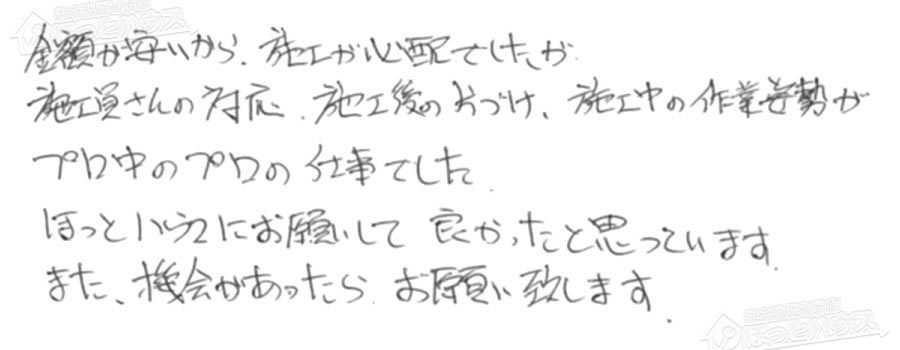 金額が安いから、施工が心配でしたが
施工員さんの対応、施工後の片づけ、施工中の作業姿勢が
プロ中のプロの仕事でした。
ほっとハウスにお願いして良かったと思っています。
また、機会があったら、お願い致します。
ほっとハウス
ほっとハウス